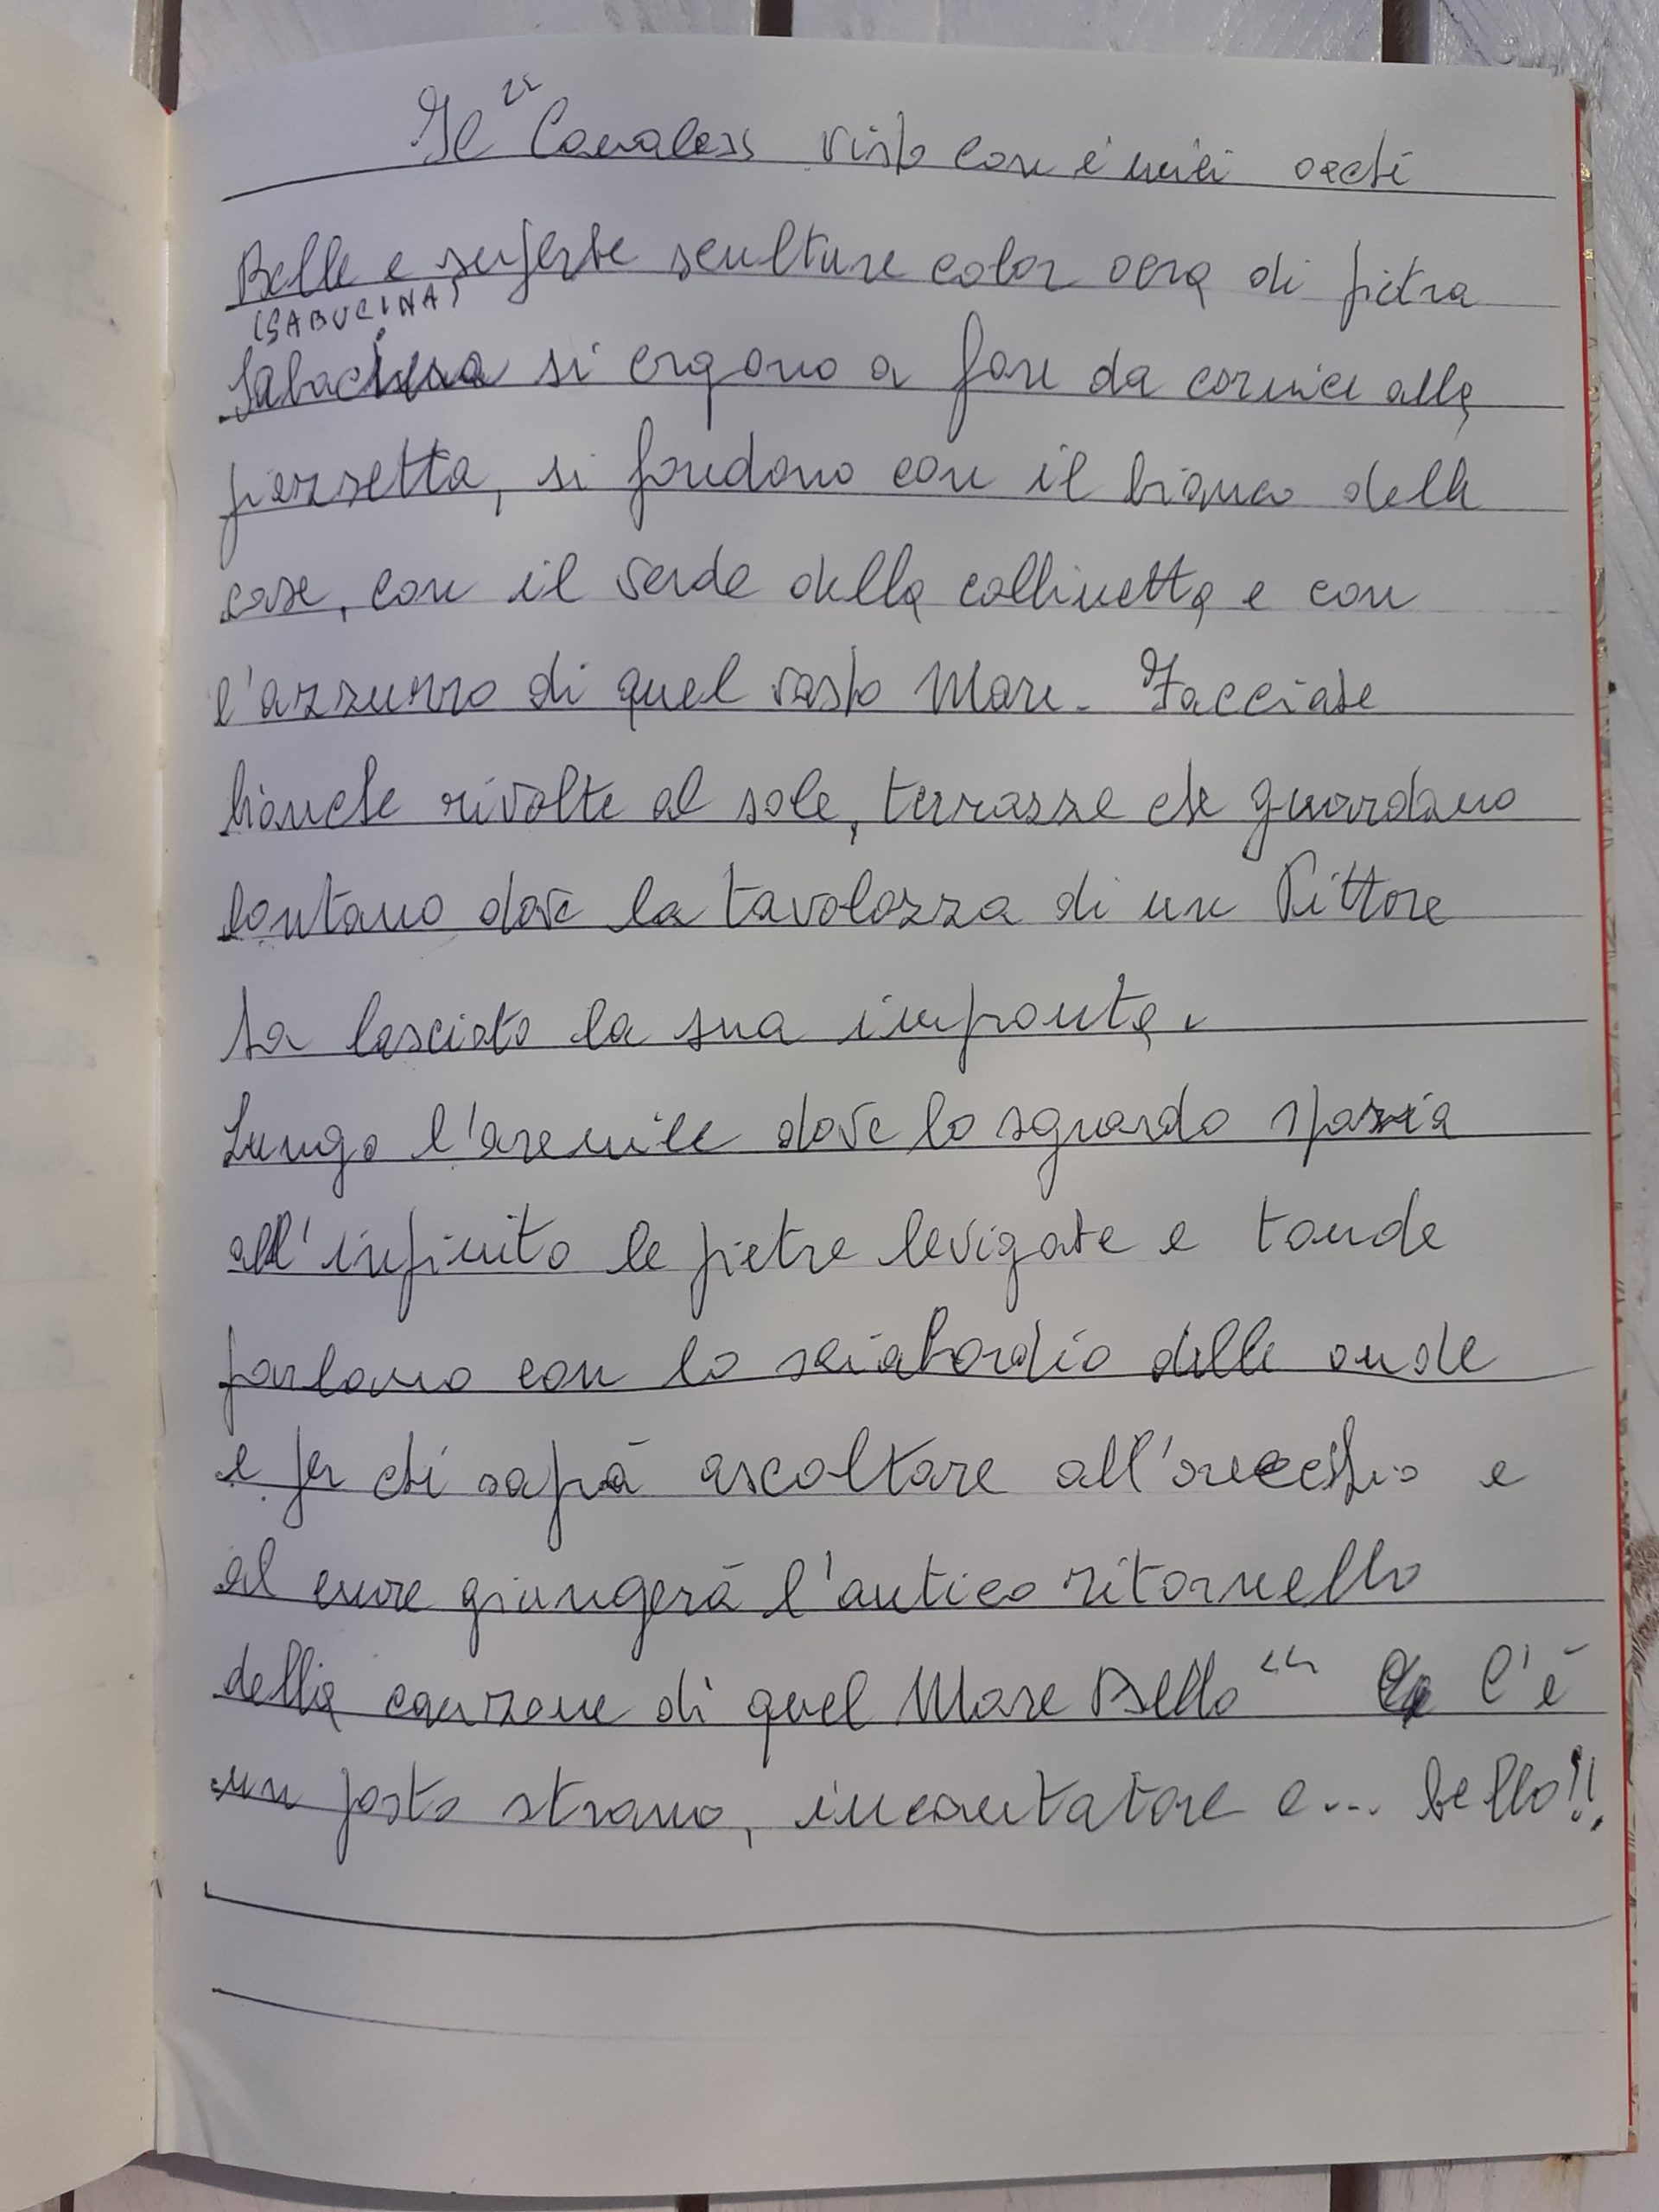 Il "Canaless visto con i miei occhi
Belle e superbe sculture color ocra di pietra
(SABUCINA)
Sabucina si ergono a fare da cornice alla
piazzetta, si fondono con il bianco delle
case, con il verde della collinetta e con
l'azzurro di quel vasto Mare. Facciate
bianche rivolte al sole, terrazze che guardano
lontano dove la tavolozza di un Pittore
ha lasciato la sua impronta.
Lungo l'arenile dove lo sguardo spazia
all'infinito le pietre levigate e tonde
parlano con lo sciabordio delle onde
e per chi saprà ascoltare all'orecchio e
al cuore giungerà l'antico ritornello
della canzone di quel Mare Bello " C'è
un posto strano, incantatore e... bello!!